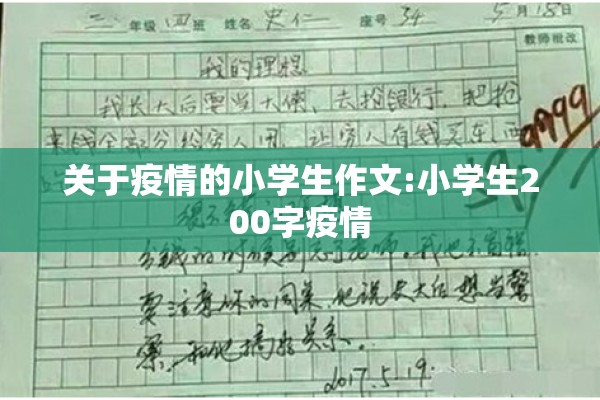 二年级(四)班 姓名 史仁 座号 34 5月18日
教师批改
我的理想
我长大后要当大侠、去抢银行,把抢
来钱全部分给穷人用,让穷人有钱买东西
关于疫情的小学生作文:小学生2
00字疫情
分钱的时候别忘了老师。我也不富裕.
要注意你的同桌,他说长大后想当警
察,和他搞好关系.
2017.5.19.